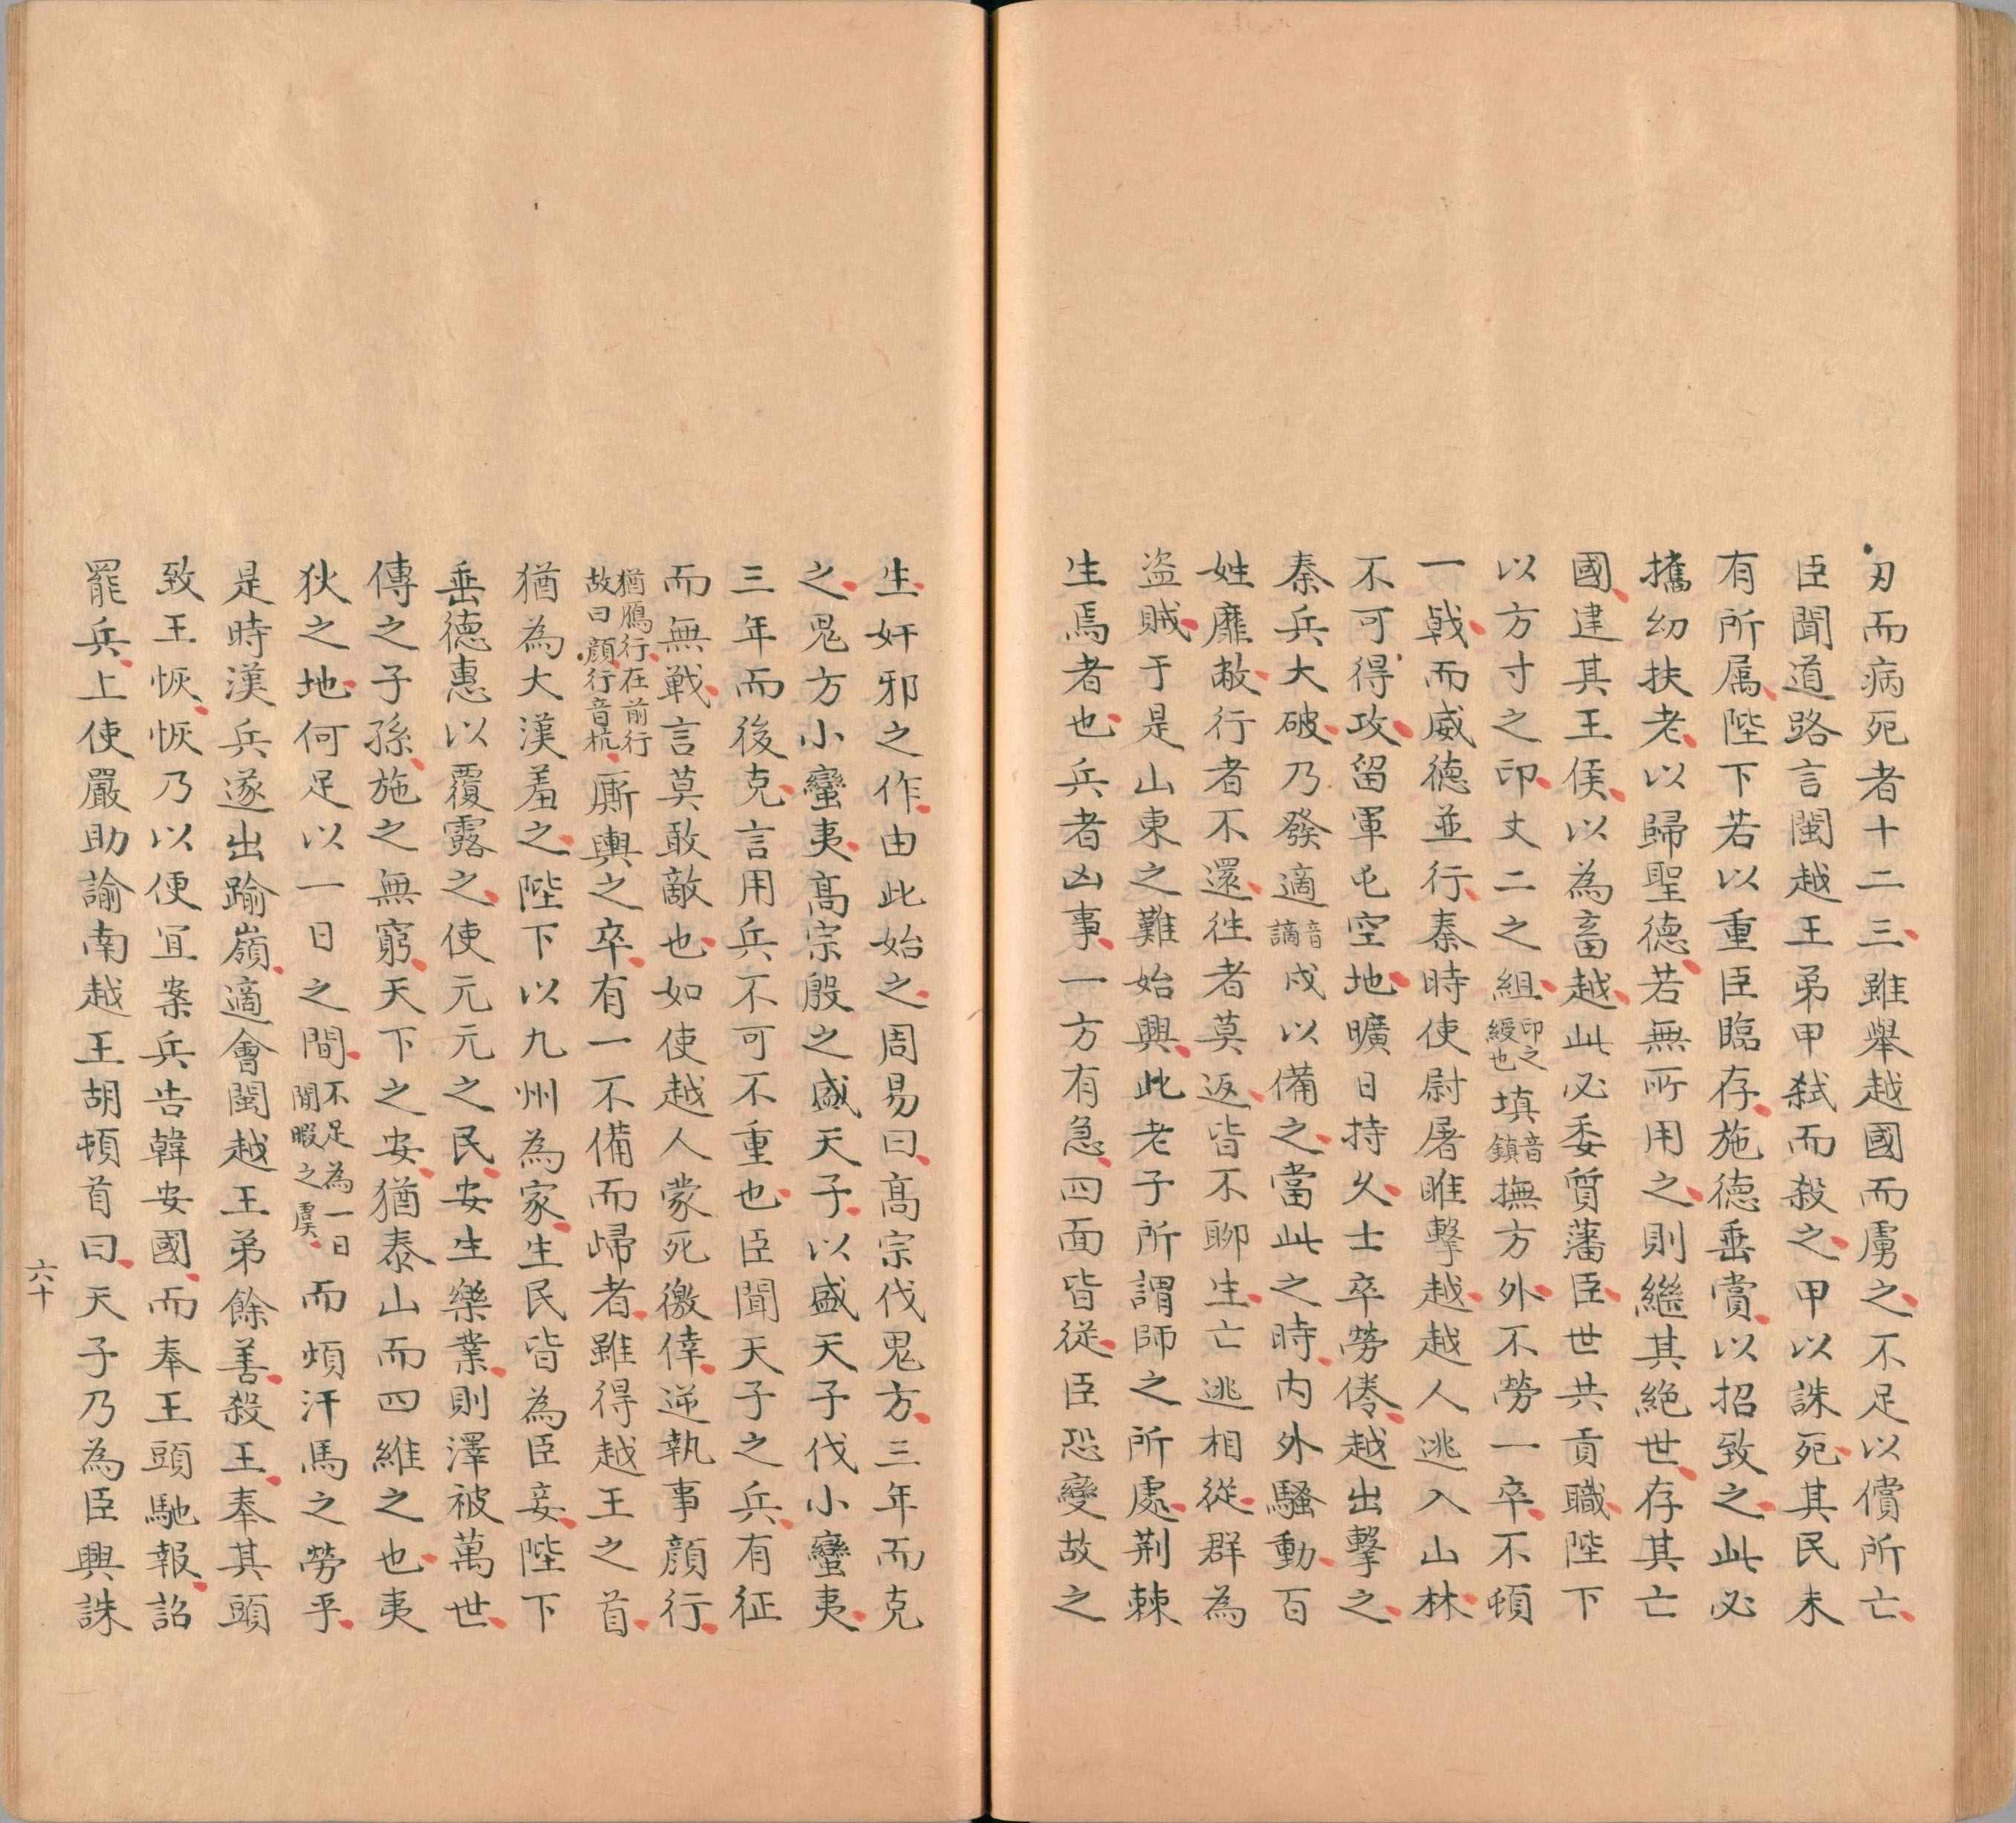 刃而病死者十二三雖舉越國而虜之不足以償所亡
臣聞道路言閩越王弟甲弒而殺之甲以誅死其民未
有所属陛下若以重臣臨存施德垂賞以招致之此必
攜幼扶老以歸聖德若無所用之則繼其絕世存其亡
國建其王侯以為畜越此必委質藩臣世共貢職陛下
以方寸之印丈二之組印之綬也填音鎮撫方外不勞一卒不頓
一戟而威德並行秦時使尉屠睢擊越越人逃入山林
不可得攻留軍屯空地曠日持久士卒勞倦越出擊之
秦兵大破乃發適音謫戍以備之當此之時內外騷動百
姓靡敝行者不還徃者莫返皆不聊生亡逃相從群為
盜賊于是山東之難始興此老子所謂師之所處荆棘
生焉者也兵者凶事一方有急四面皆從臣恐變故之
生奸邪之作由此始之周易曰髙宗伐鬼方三年而克
之鬼方小蠻夷髙宗殷之盛天子以盛天子伐小蠻夷
三年而後克言用兵不可不重也臣聞天子之兵有征
而無戰言莫敢敵也如使越人蒙死徼倖逆執事顔行
猶鴈行在前行故曰顔行音杭厮輿之卒有一不備而歸者雖得越王之首
猶為大漢羞之陛下以九州為家生民皆為臣妾陛下
垂德惠以覆露之使元元之民安生樂業則澤被萬世
傳之子孫施之無窮天下之安猶泰山而四維之也夷
狄之地何足以一日之間不足為一日閒暇之虞而煩汗馬之勞乎
是時漢兵遂出踰嶺適會閩越王弟餘善殺王奉其頭
致王恢恢乃以便宜案兵告韓安國而奉王頭馳報詔
罷兵上使嚴助諭南越王胡頓首曰天子乃為臣興誅
六十